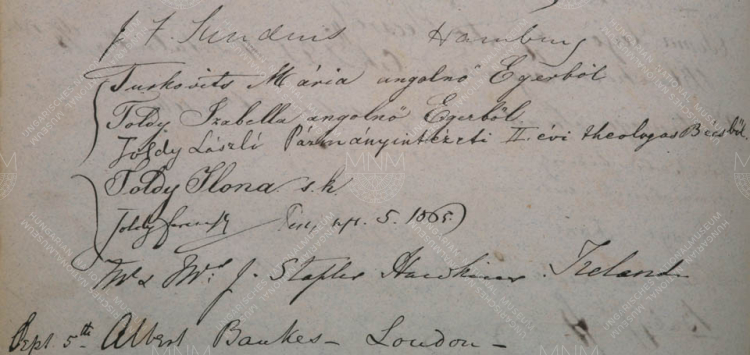 J F. Sunders Hamburg
Turkovits Mária angolnő Egerből
Toldy Izabella angolnő Egerből
Toldy László Pázmányintézeti II. évi theologus Bécsből.
Toldy Ilona s.k.
Toldy Ferencz Pest, sept. 5. 1865.
Mr & Mrs J. Stapler Hawkins. Ireland
Sept. 5th Albert Bankes - London -
MNM
HUNGARIAN MUSEUM